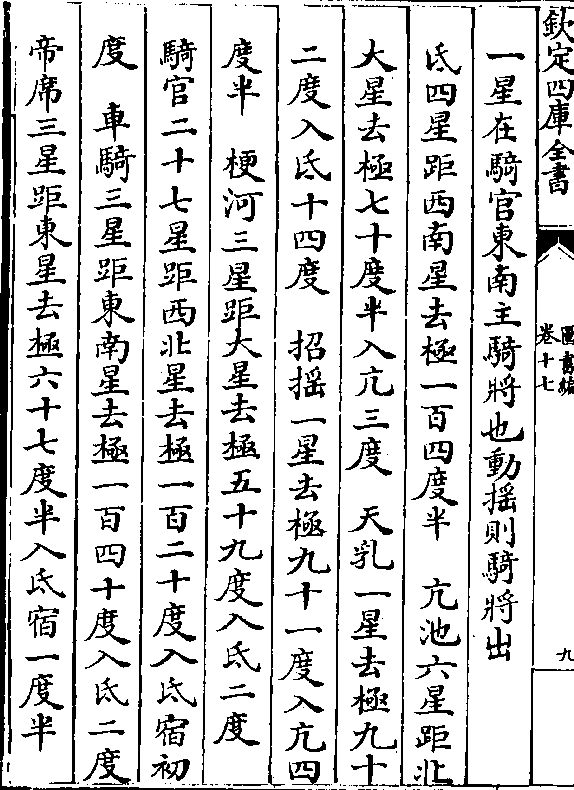 欽定四庫全書
圖書編
卷十七
九
一星在騎官東南主騎將也動揺則騎將出
氐四星距西南星去極一百四度半　亢池六星距北
大星去極七十度半入亢三度　天乳一星去極九十
二度入氐十四度　招揺一星去極九十一度入亢四
度半　梗河三星距大星去極五十九度入氐二度
騎官二十七星距西北星去極一百二十度入氐宿初
度　車騎三星距東南星去極一百四十度入氐二度
帝席三星距東星去極六十七度半入氐宿一度半